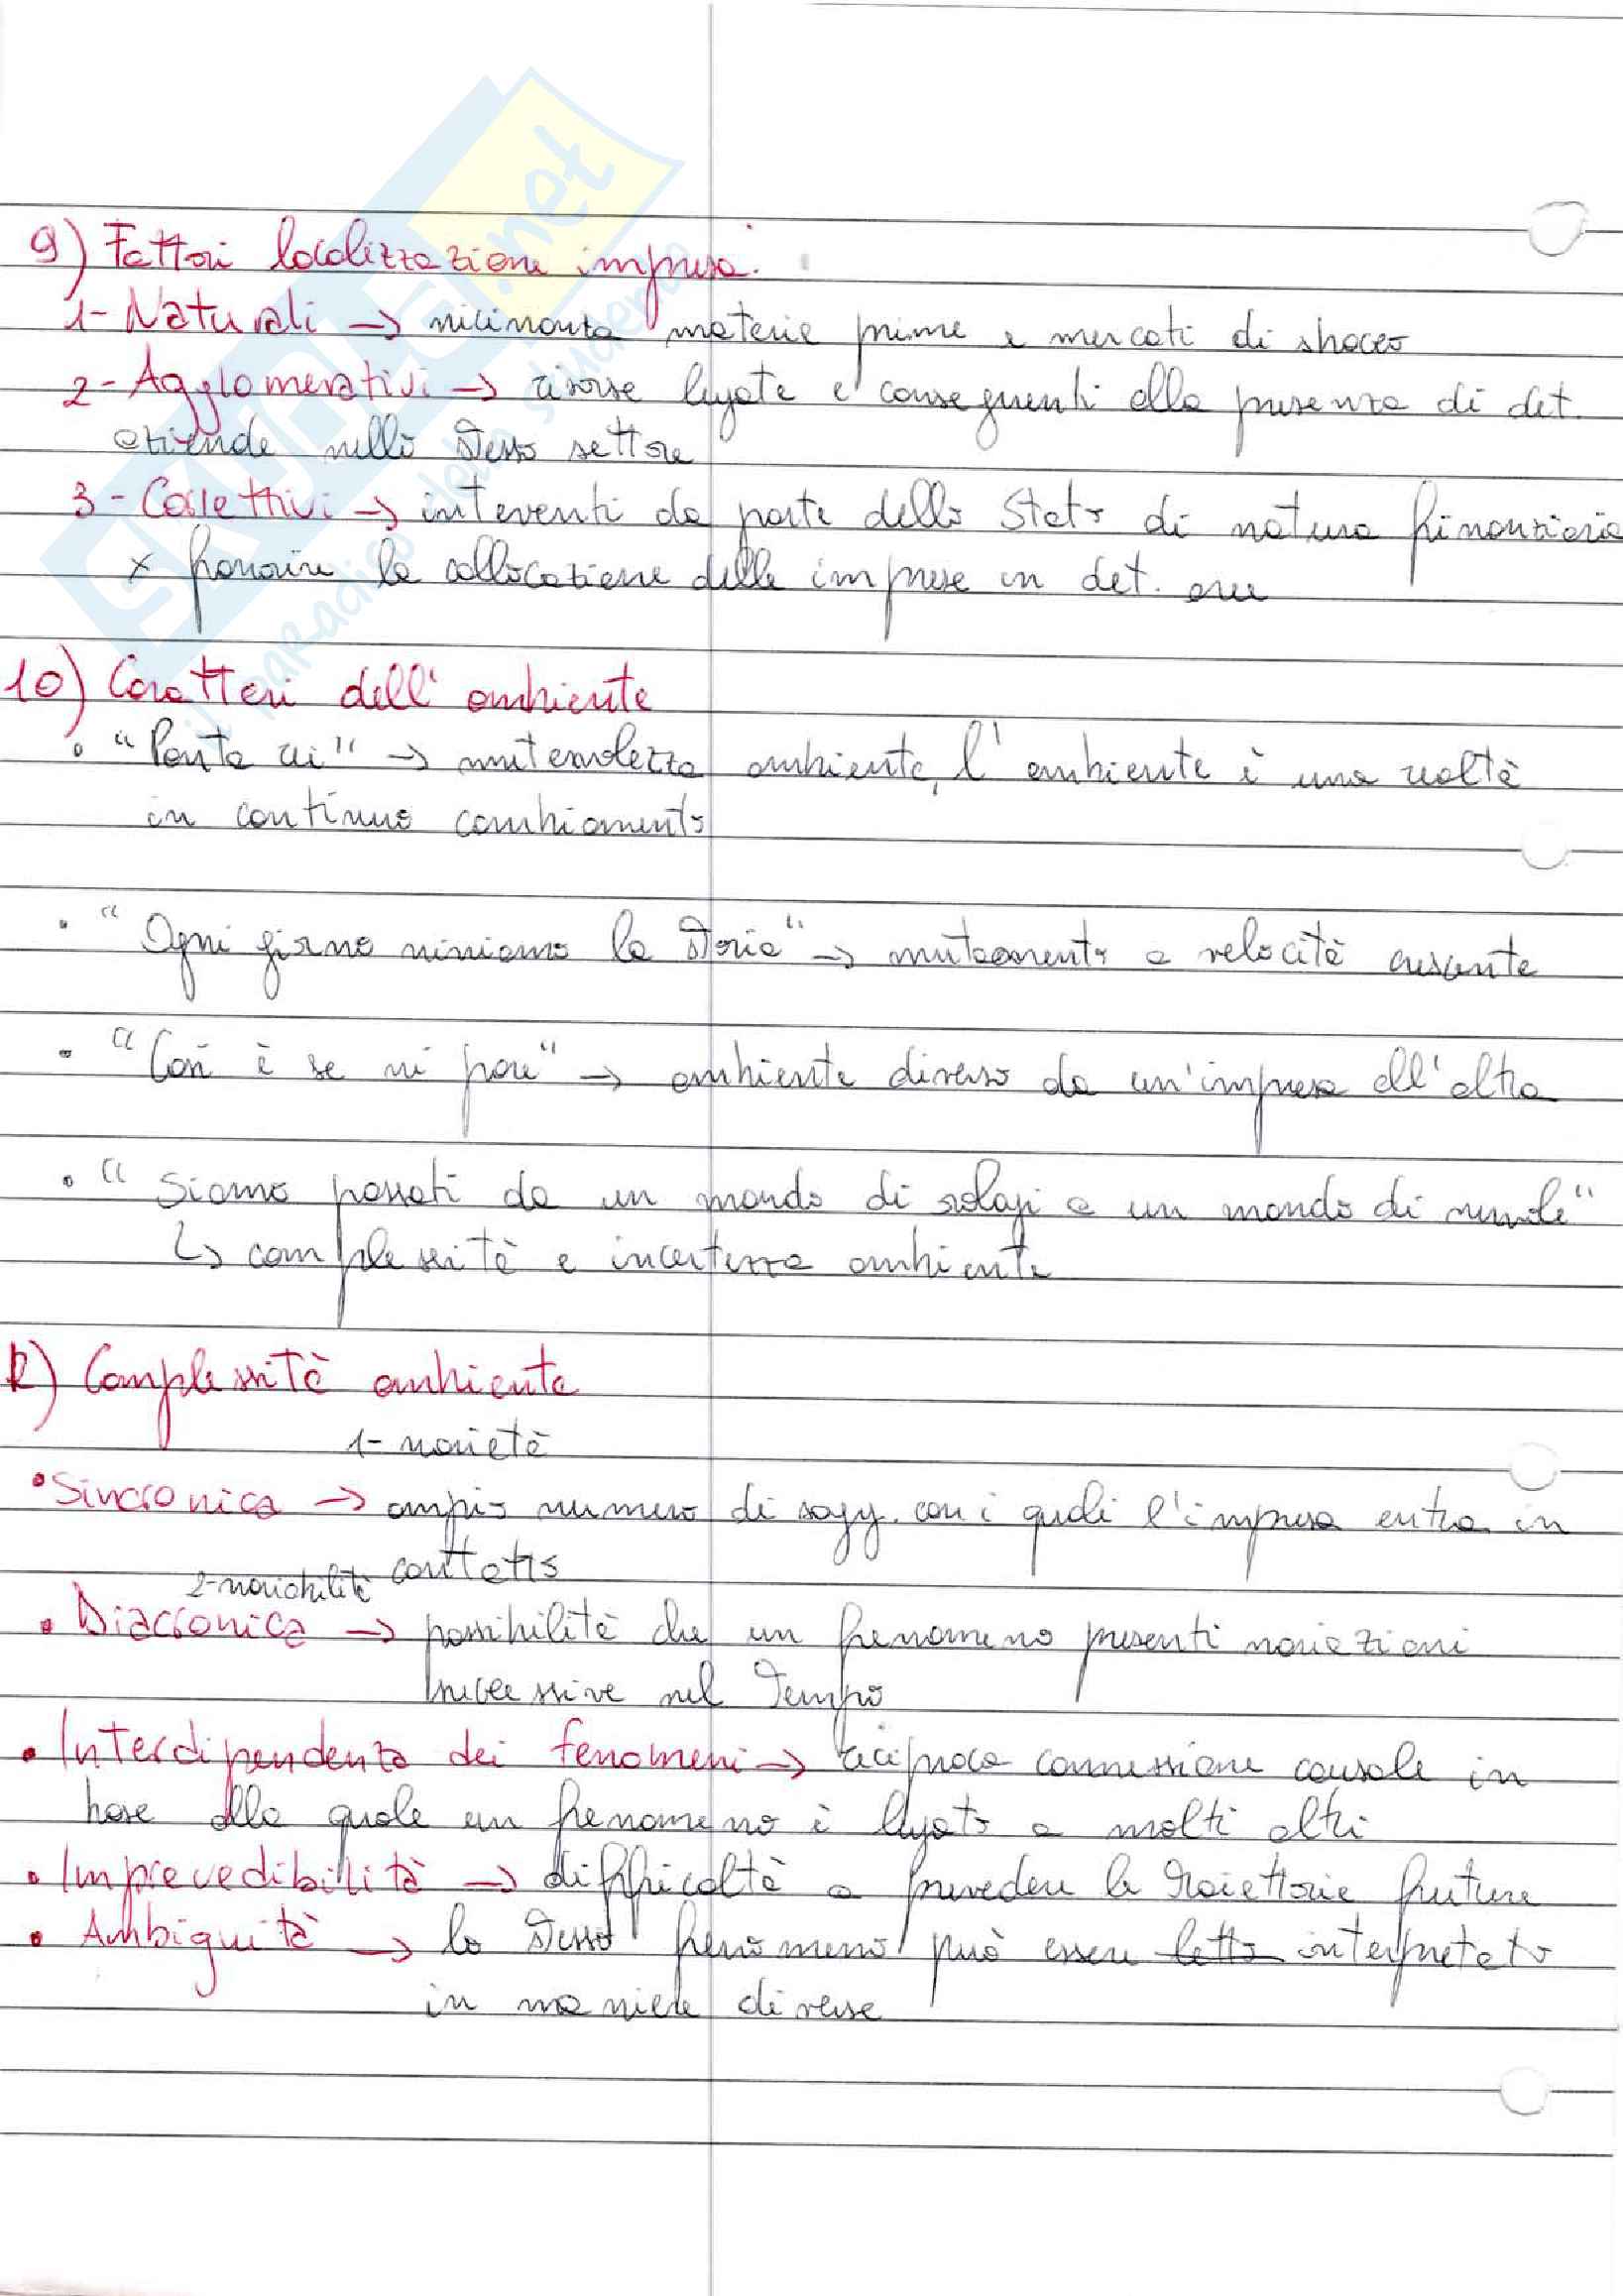 SKUOLA.net
il paradiso dello studente
9) Fattori localizzazione impresa.
1- Naturali → vicinanza materie prime e mercati di sbocco
2- Agglomerativi → risorse legate e conseguenti alla presenza di det.
aziende nello stesso settore
3- Collettivi → inteventi da parte dello Stato di natura finanziaria
x favorire la collocazione delle imprese in det. aree
10) Caratteri dell'ambiente
• "Panta rei" → mutevolezza ambiente, l'ambiente è una realtà
in continuo cambiamento
• "Ogni giorno viviamo la storia" → mutamento a velocità crescente
• "Così è se vi pare" → ambiente diverso da un'impresa all'altra
• "Siamo passati da un mondo di orologi a un mondo di nuvole"
↳ complessità e incertezza ambiente
Complessità ambiente
1- varietà
• Sincronica → ampio numero di sogg. con i quali l'impresa entra in
contatto
2- variabilità
• Diacronica → possibilità che un fenomeno presenti variazioni
successive nel tempo
• Interdipendenza dei fenomeni → reciproca connessione causale in
base alla quale un fenomeno è legato a molti altri
• Imprevedibilità → difficoltà a prevedere le traiettorie future
• Ambiguità → lo stesso fenomeno può essere letto interpretato
in maniere diverse